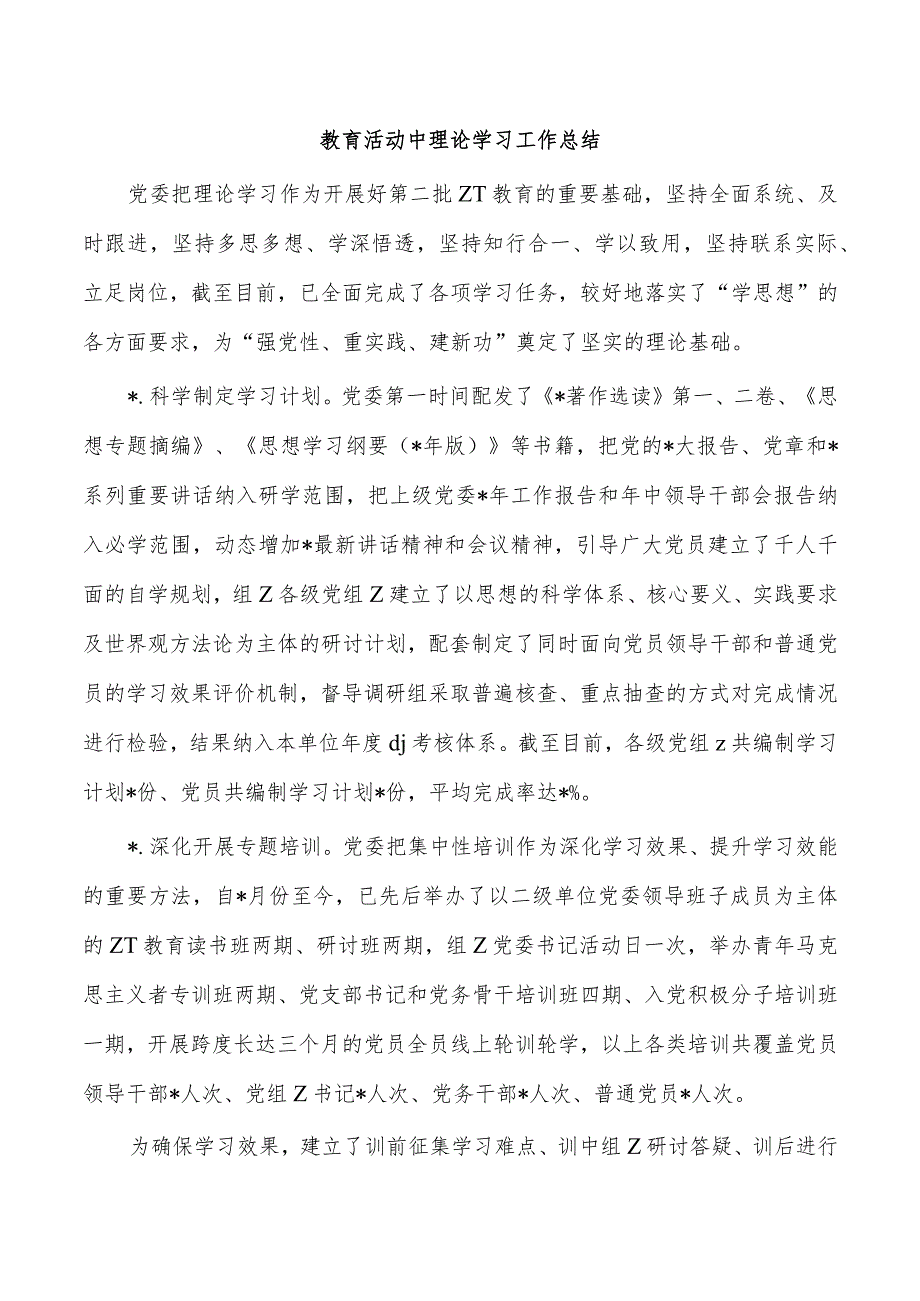 教育活动中理论学习工作总结
党委把理论学习作为开展好第二批 ZT 教育的重要基础，坚持全面系统、及
时跟进，坚持多思多想、学深悟透，坚持知行合一、学以致用，坚持联系实际、
立足岗位，截至目前，已全面完成了各项学习任务，较好地落实了“学思想”的
各方面要求，为“强党性、重实践、建新功”奠定了坚实的理论基础。
*. 科学制定学习计划。党委第一时间配发了《*著作选读》第一、二卷、《思
想专题摘编》、《思想学习纲要（*年版）》等书籍，把党的*大报告、党章和*
系列重要讲话纳入研学范围，把上级党委*年工作报告和年中领导干部会报告纳
入必学范围，动态增加*最新讲话精神和会议精神，引导广大党员建立了千人千
面的自学规划，组 Z 各级党组 Z 建立了以思想的科学体系、核心要义、实践要求
及世界观方法论为主体的研讨计划，配套制定了同时面向党员领导干部和普通党
员的学习效果评价机制，督导调研组采取普遍核查、重点抽查的方式对完成情况
进行检验，结果纳入本单位年度 dj 考核体系。截至目前，各级党组 z 共编制学习
计划*份、党员共编制学习计划*份，平均完成率达*%。
*. 深化开展专题培训。党委把集中性培训作为深化学习效果、提升学习效能
的重要方法，自*月份至今，已先后举办了以二级单位党委领导班子成员为主体
的 ZT 教育读书班两期、研讨班两期，组 Z 党委书记活动日一次，举办青年马克
思主义者专训班两期、党支部书记和党务骨干培训班四期、入党积极分子培训班
一期，开展跨度长达三个月的党员全员线上轮训轮学，以上各类培训共覆盖党员
领导干部*人次、党组 Z 书记*人次、党务干部*人次、普通党员*人次。
为确保学习效果，建立了训前征集学习难点、训中组 Z 研讨答疑、训后进行